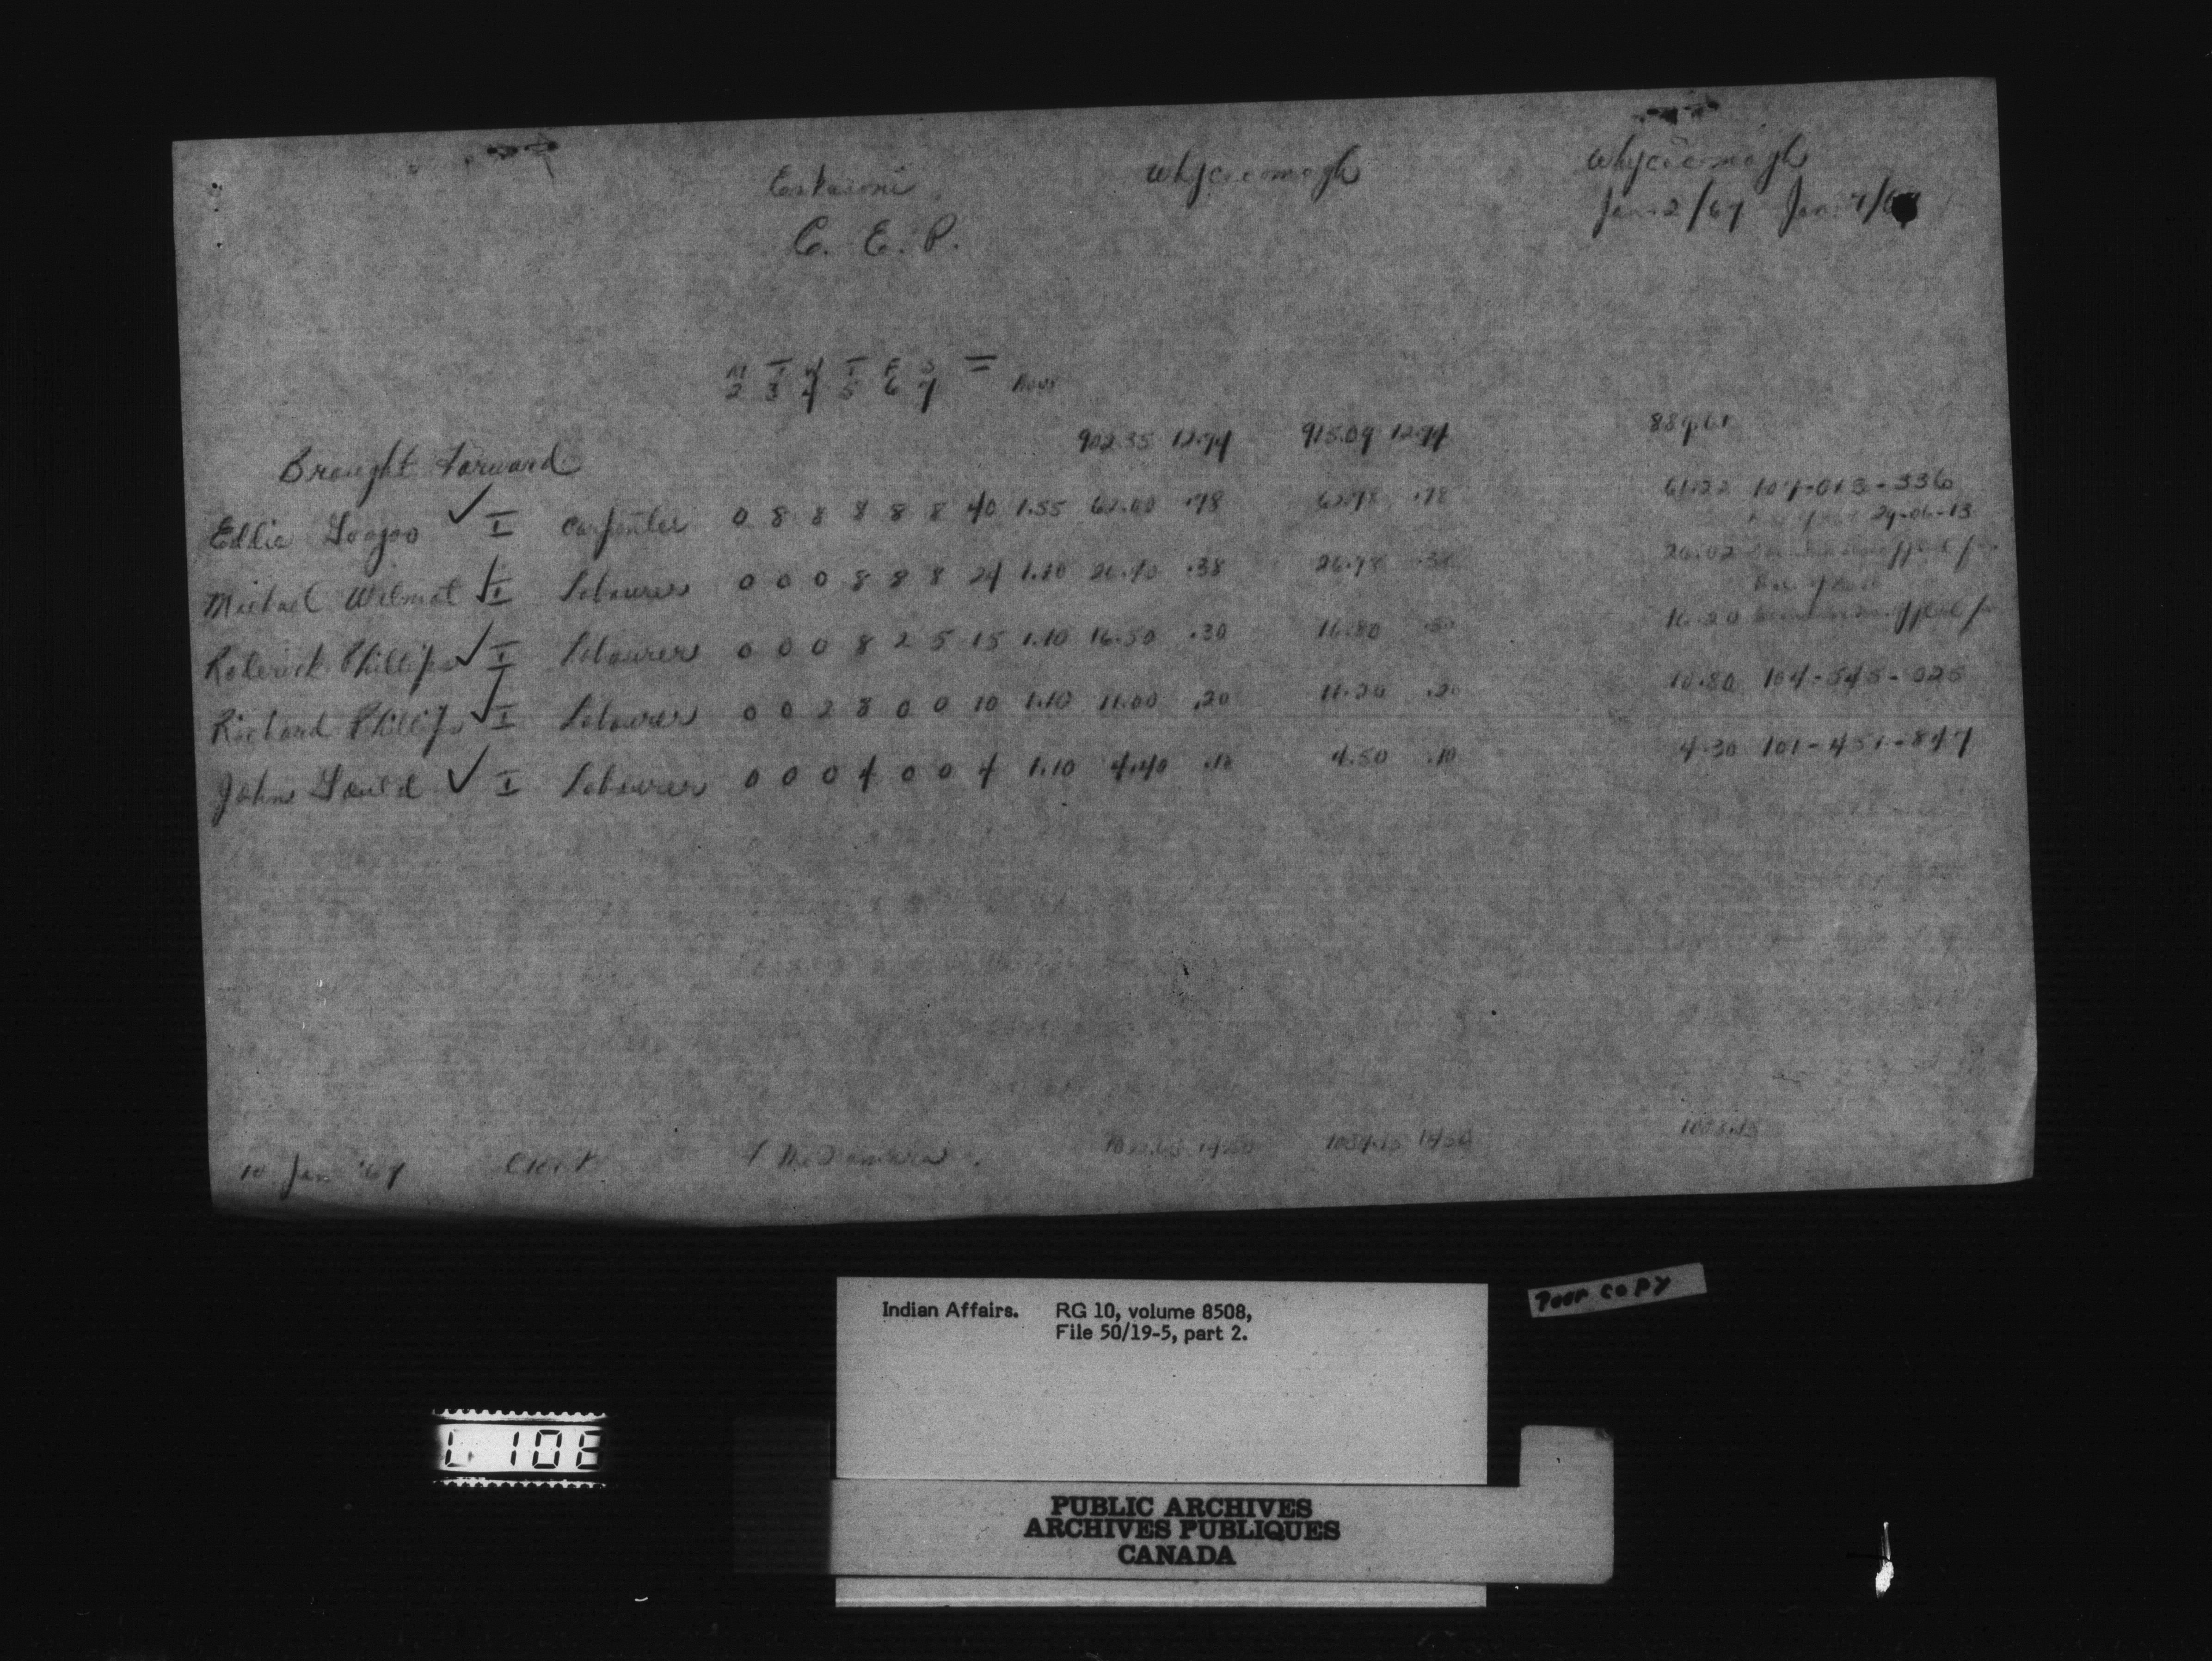 Eskasoni Whycocomagh Whycocomagh
C. E. P. Jan 2/67 Jan 7/67
M T W T F S
2 3 4 5 6 7 Hours
Brought Forward 902.35 12.74 915.09 12.74 889.61
Eddie Googoo ✓ I Carpenter 0 8 8 8 8 8 40 1.55 62.00 .78 62.78 .78 61.22 107-013-336
29-06-13
Michael Wilmot ✓ I Labourer 0 0 0 8 8 8 24 1.10 26.40 .38 26.78 .38 26.02 applied for
Roderick Phillips ✓ I Labourer 0 0 0 8 2 5 15 1.10 16.50 .30 16.80 .30 16.20 applied for
Richard Phillips ✓ I Labourer 0 0 2 8 0 0 10 1.10 11.00 .20 11.20 .20 10.80 104-545-025
John Gould ✓ I Labourer 0 0 0 4 0 0 4 1.10 4.40 .10 4.50 .10 4.30 101-451-847
10 Jan '67
Indian Affairs. RG 10, volume 8508,
File 50/19-5, part 2.
Poor copy
PUBLIC ARCHIVES
ARCHIVES PUBLIQUES
CANADA